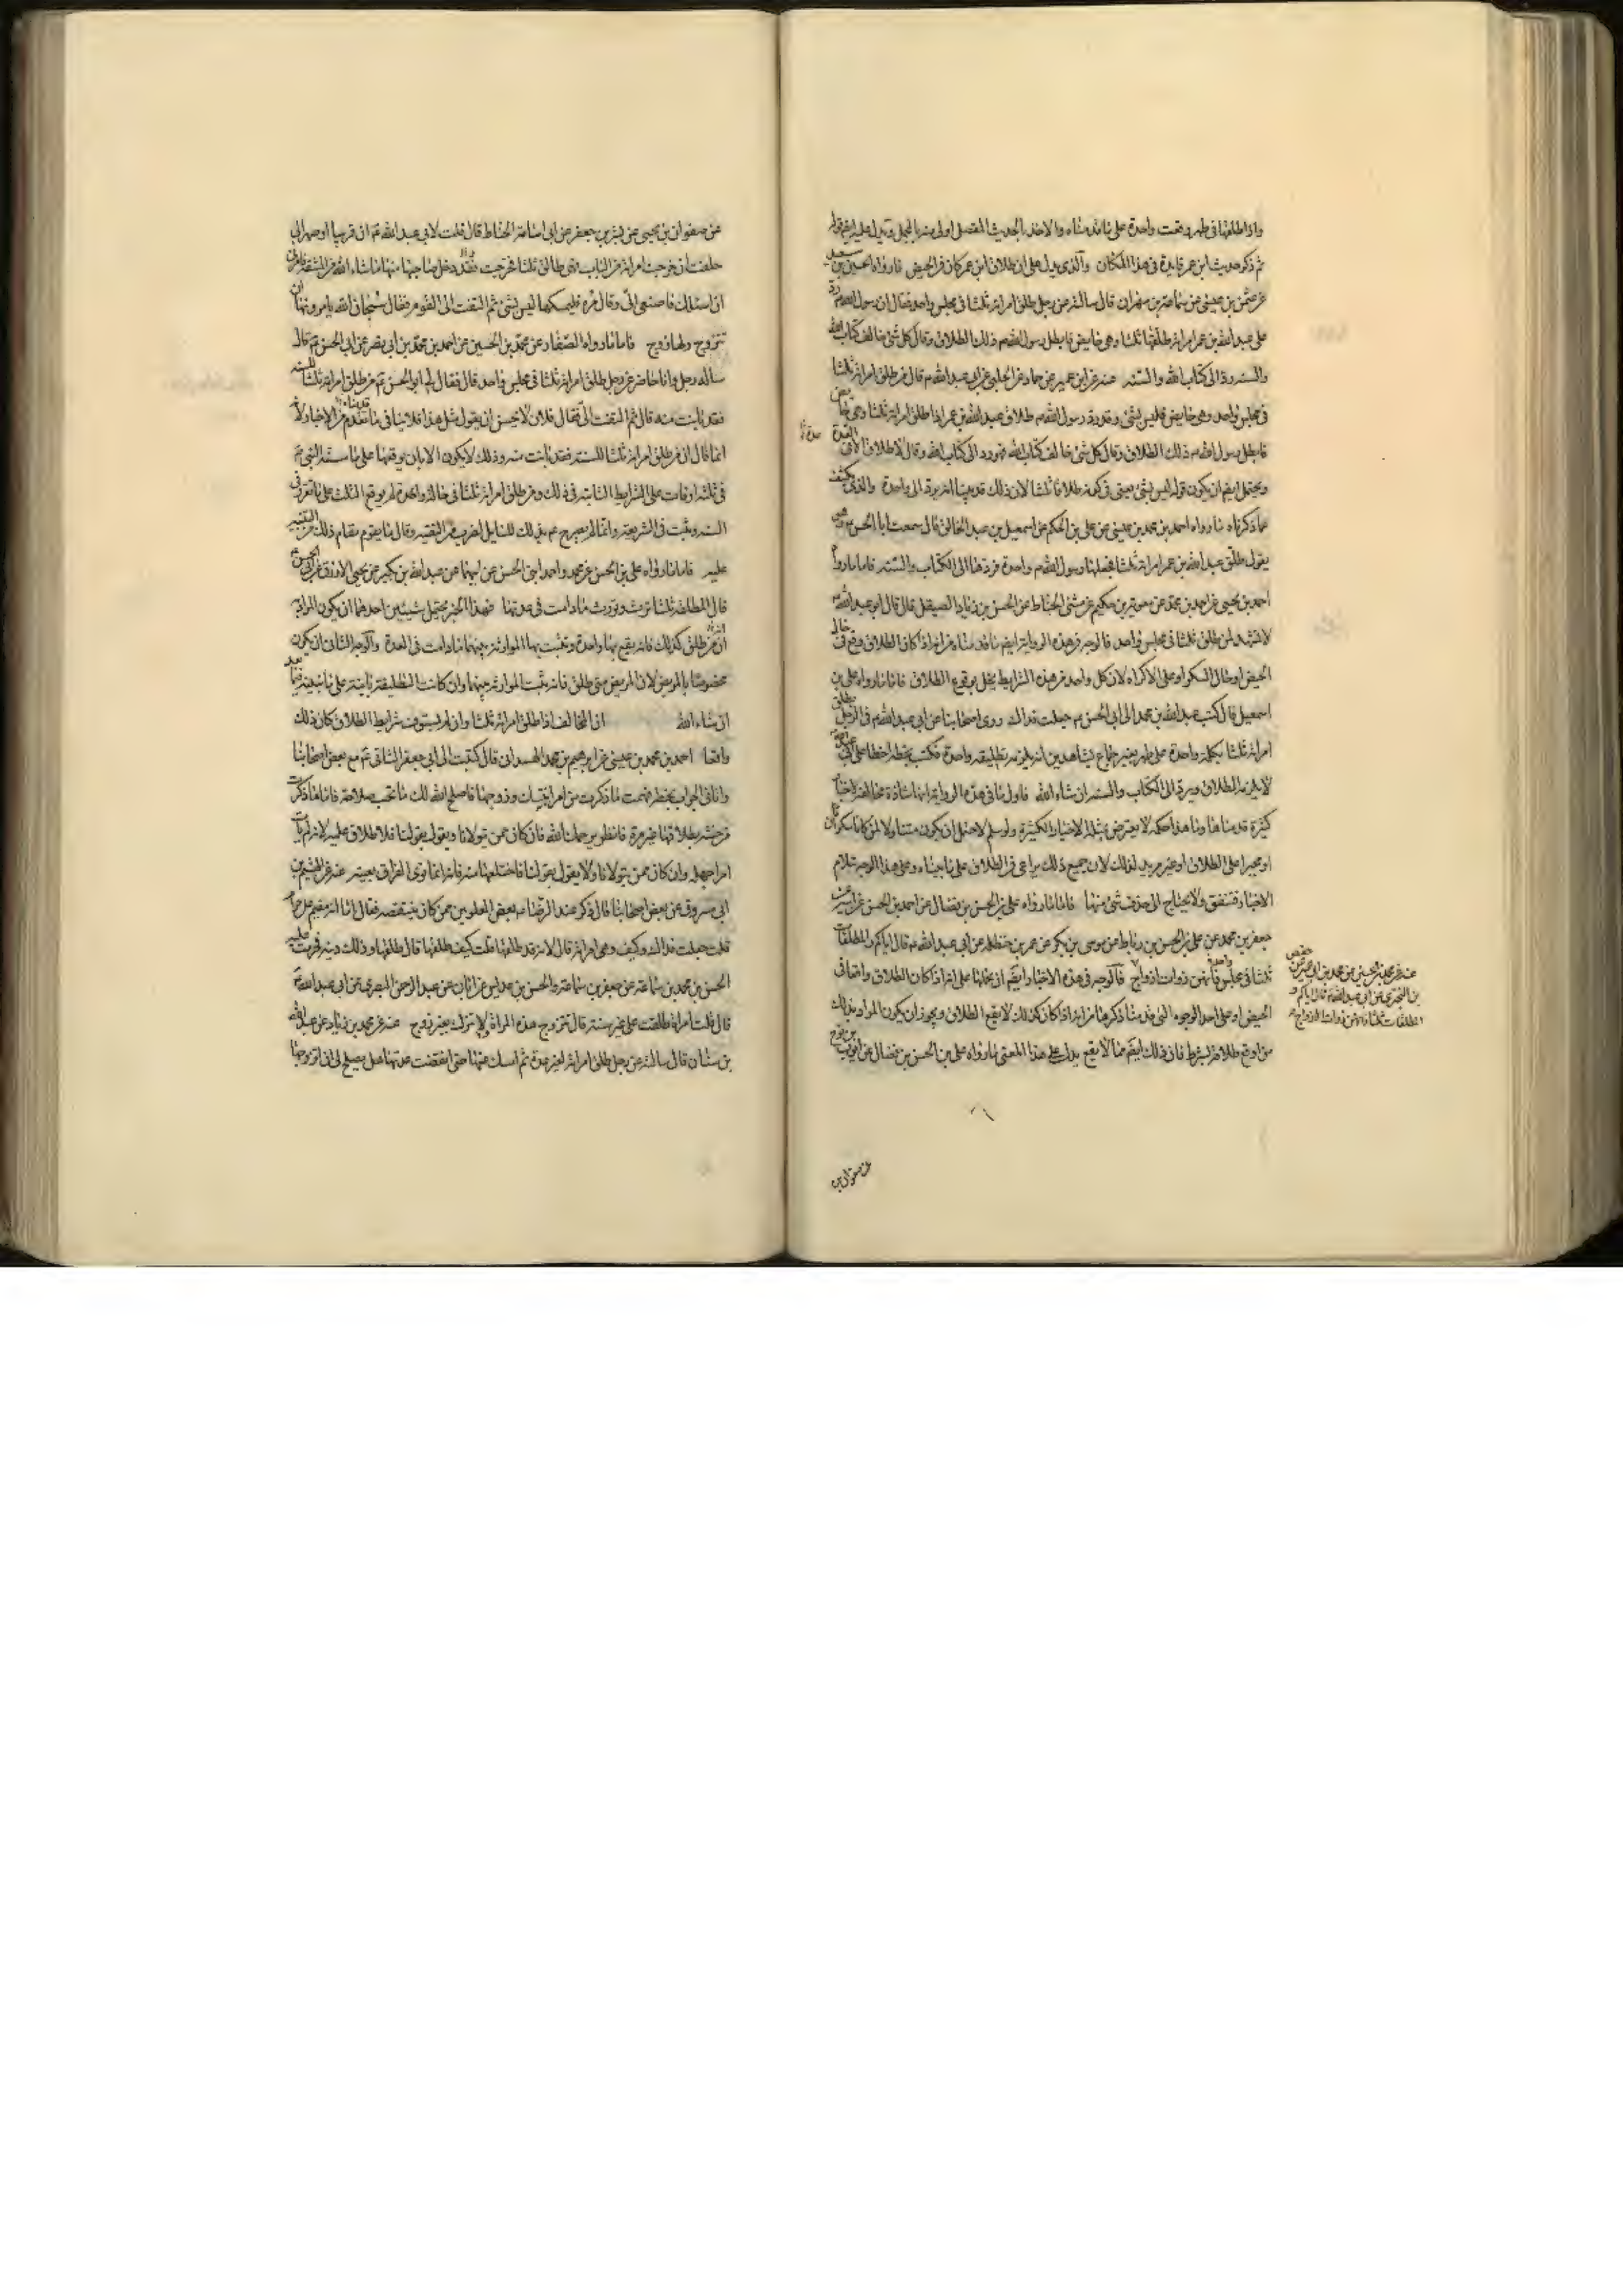 واذا طلقها فى طهر وقعت واحدة على ما قدمناه والاخذ بالحديث المفصل اولى منه بالمجمل ويدل عليه ايضا قوله
ثم ذكر حديث ابن عمر فايدة فى هذا المكان والذى يدل على ان طلاق ابن عمر كان فى الحيض ما رواه الحسين بن سعيد
عن عثمن بن عيسى عن سماعة بن مهران قال سالته عن رجل طلق امراته ثلثا فى مجلس واحد فقال ان رسول الله ص رد
على عبد الله بن عمر امراته طلقها ثلثا وهى حايض فابطل رسول الله ص ذلك الطلاق وقال كل شئ خالف كتاب الله
والسنة رد الى كتاب الله والسنة عنه عن ابن ابى عمير عن حماد عن الحلبى عن ابى عبد الله ع قال من طلق امراته ثلثا
فى مجلس واحد وهى حايض فليس بشئ وقد رد رسول الله ص طلاق عبد الله بن عمر اذا طلق امراته ثلثا وهى حايض
فابطل رسول الله ص ذلك الطلاق وقال كل شئ خالف كتاب الله فهو رد الى كتاب الله وقال لا طلاق الا فى العدة
ويحتمل ايضا ان يكون قوله ليس بشئ يعنى فى كونه طلاقا ثلثا لان ذلك قد بينا انه يرد الى واحدة والذى يكشف
عما ذكرناه ما رواه احمد بن محمد بن عيسى عن على بن الحكم عن اسمعيل بن عبد الخالق قال سمعت ابا الحسن ع وهو
يقول طلق عبد الله بن عمر امراته ثلثا فجعلها رسول الله ص واحدة فردها الى الكتاب والسنة فاما ما رواه
احمد بن يحيى عن احمد بن محمد عن معوية بن حكيم عن مثنى الحناط عن الحسن بن زياد الصيقل قال قال ابو عبد الله ع
لا تشهد لمن طلق ثلثا فى مجلس واحد فالوجه فى هذه الرواية ايضا ما قدمناه من انه اذا كان الطلاق وقع فى حال
الحيض او حال السكر او على الاكراه لان كل واحد من هذه الشرايط يخل بوقوع الطلاق فاما ما رواه على بن
اسمعيل قال كتب عبد الله بن محمد الى ابى الحسن ع جعلت فداك روى اصحابنا عن ابى عبد الله ع فى الرجل يطلق
امراته ثلثا بكلمة واحدة على طهر بغير جماع بشاهدين انه يلزمه تطليقة واحدة فكتب بخطه اخطا على ابى عبد الله
لا يلزمه الطلاق ويرد الى الكتاب والسنة ان شاء الله فاول ما فى هذه الرواية انها شاذة مخالفة لاخبار
كثيرة قدمناها وما هذا حكمه لا يعترض بمثله الاخبار الكثيرة ولو سلم لاحتمل ان يكون متناولا لمن كان سكران
او مجبرا على الطلاق او غير مريد لذلك لان جميع ذلك يراعى فى الطلاق على ما بيناه وعلى هذا الوجه تلاءم
الاخبار وتتفق ولا يحتاج الى حذف شئ منها فاما ما رواه على بن الحسن بن فضال عن احمد بن الحسن عن ابيه عن
جعفر بن محمد عن على بن الحسن بن رباط عن موسى بن بكر عن عمر بن حنظلة عن ابى عبد الله ع قال اياكم والمطلقات
ثلثا فى مجلس واحد فانهن ذوات ازواج فالوجه فى هذه الاخبار ايضا ان نحملها على انه اذا كان الطلاق واقعا فى
الحيض او على احد الوجوه التى قدمنا ذكرها من انه اذا كان كذلك لا يقع الطلاق ويجوز ان يكون المراد بذلك
من اوقع طلاقه بشرط فان ذلك ايضا مما لا يقع يدل على هذا المعنى ما رواه على بن الحسن بن فضال عن ايوب بن نوح
عنه عن محمد بن الحسين عن محمد بن ابى عمير عن حفص
بن البخترى عن ابى عبد الله ع قال اياكم و
المطلقات ثلثا فانهن ذوات الازواج
عن صفوان بن
عن صفوان بن يحيى عن بشر بن جعفر عن ابى اسامة الحناط قال قلت لابى عبد الله ع ان قريبا لى او صهرا لى
حلف ان خرجت امراته من الباب فهى طالق ثلثا فخرجت فقد دخل صاحبها منها ما شاء الله من المشقة فامرنى
ان اسئلك فاصغى الى وقال مره فليمسكها ليس بشئ ثم التفت الى القوم فقال سبحان الله يامرونها ان
تتزوج ولها زوج فاما ما رواه الصفار عن محمد بن الحسين عن احمد بن محمد بن ابى نصر عن ابى الحسن ع قال
ساله رجل وانا حاضر عن رجل طلق امراته ثلثا فى مجلس واحد قال فقال لى ابو الحسن ع من طلق امراته ثلثا للسنة
فقد بانت منه قال ثم التفت الى فقال فلان لا يحسن ان يقول مثل هذا فلا ينافى ما قدمناه من الاخبار لانه
انما قال ان من طلق امراته ثلثا للسنة فقد بانت منه وذلك لا يكون الا بان يوقعها على ما سنه النبى ص
فى ثلثة اوقات على الشرايط الثابتة فى ذلك ومن طلق امراته ثلثا فى حالة واحدة لم يوقع الثلث على ما تقرر فى
السنة وثبت فى الشريعة وانما لم يصرح ع بذلك للسايل لضرب من التقية وقال ما يقوم مقام ذلك من التنبيه
عليه فاما ما رواه على بن الحسن عن محمد واحمد ابنى الحسن عن ابيهما عن عبد الله بن بكير عن يحيى الازرق عن ابى الحسن ع
قال المطلقة ثلثا ترث وتورث ما دامت فى عدتها فهذا الخبر يحتمل شيئين احدهما ان يكون المراد به
ان من طلق كذلك فانه يقع بها واحدة وتثبت بها الموارثة بينهما ما دامت فى العدة والوجه الثانى ان يكون
مخصوصا بالمريض لان المريض متى طلق فانه يثبت الموارثة بينهما وان كانت التطليقة باينة على ما نبينه فيما بعد
ان شاء الله ان المخالف اذا طلق امراته ثلثا وان لم يستوف شرايط الطلاق كان ذلك
واقعا احمد بن محمد بن عيسى عن ابرهيم بن محمد الهمدانى قال كتبت الى ابى جعفر الثانى ع مع بعض اصحابنا
واتانى الجواب بخطه فهمت ما ذكرت من امر ابنتك وزوجها فاصلح الله لك ما تحب صلاحه فاما ما ذكرت
من حنثه بطلاقها غير مرة فانظر يرحمك الله فان كان ممن يتولانا ويقول بقولنا فلا طلاق عليه لانه لم يات
امرا جهله وان كان ممن لا يتولانا ولا يقول بقولنا فاختلعها منه فانه انما نوى الفراق بعينه عنه عن الهيثم بن
ابى مسروق عن بعض اصحابنا قال ذكر عند الرضا ع بعض العلويين ممن كان ينتقصه فقال اما انه مقيم على حرام
قلت جعلت فداك وكيف وهى امراته قال لانه قد طلقها قلت كيف طلقها قال طلقها وذلك دينه فحرمت عليه
الحسن بن محمد بن سماعة عن جعفر بن سماعة والحسن بن عديس عن ابان عن عبد الرحمن البصرى عن ابى عبد الله ع
قال قلت امراة طلقت على غير سنة قال تتزوج هذه المراة لا تترك بغير زوج عنه عن محمد بن زياد عن عبد الله
بن سنان قال سالته عن رجل طلق امراته لغير عدة ثم امسك عنها حتى انقضت عدتها هل يصلح لى ان اتزوجها